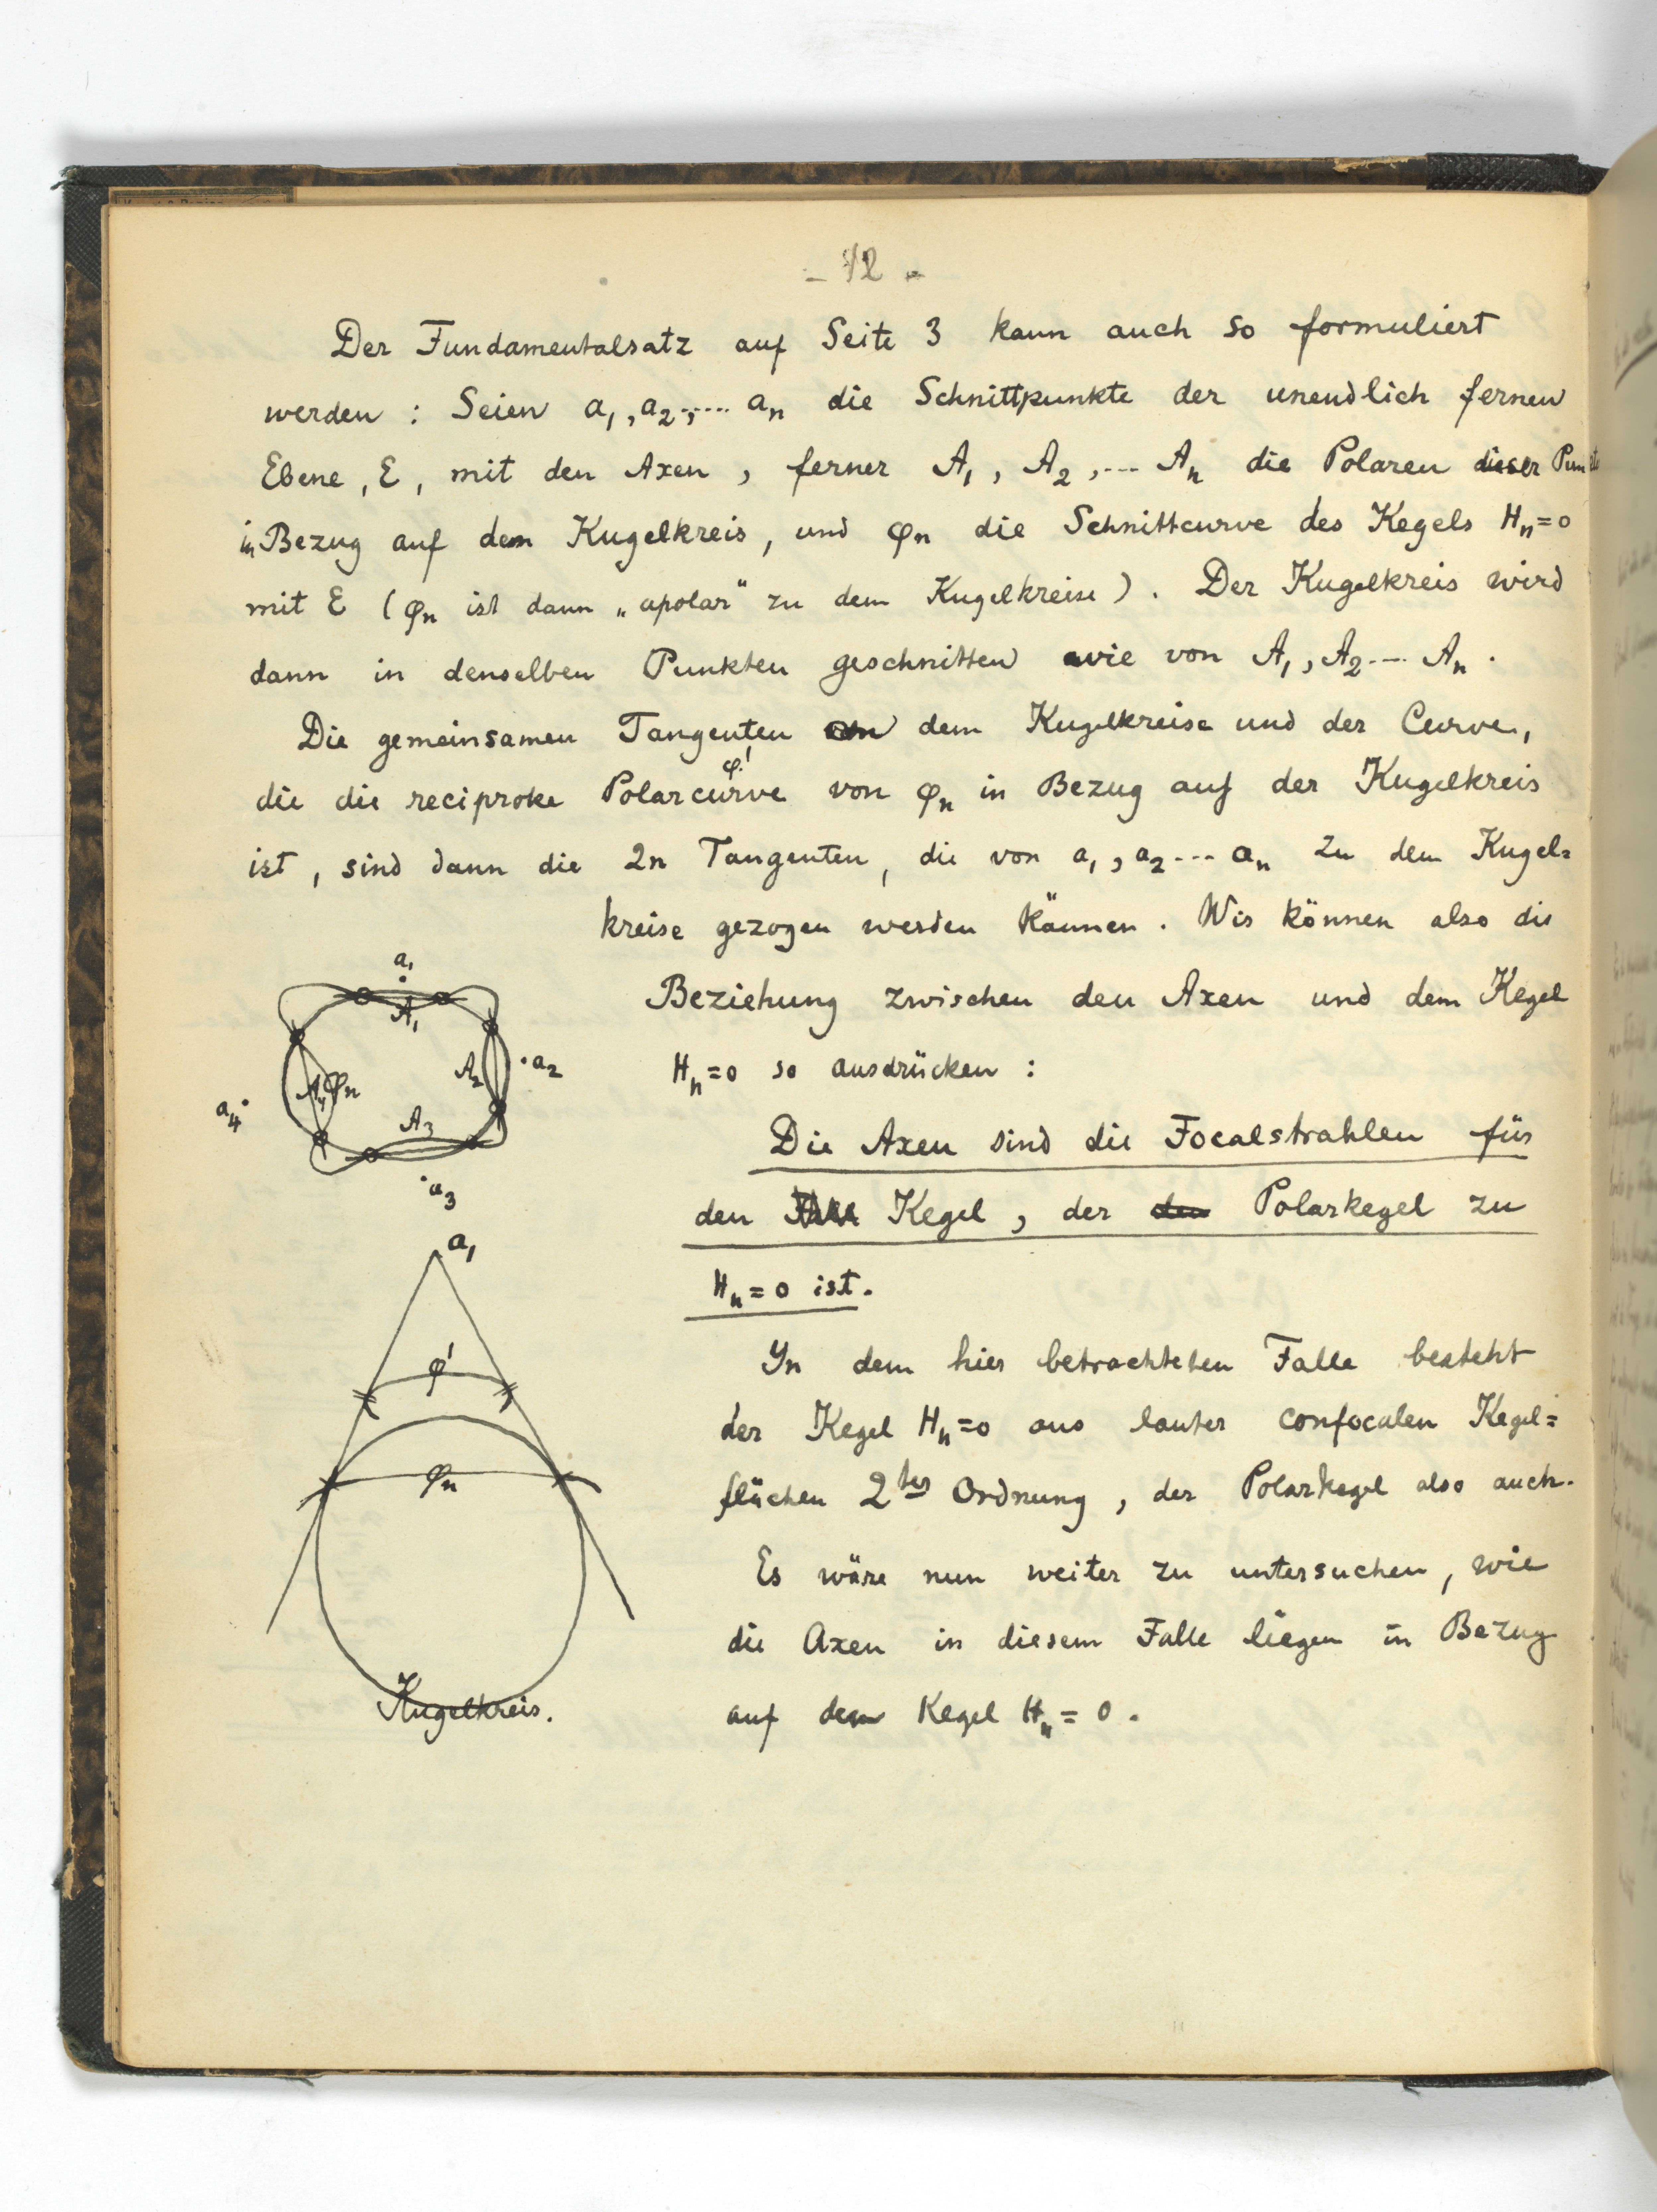 - 12 -
Der Fundamentalsatz auf Seite 3 kann auch so formuliert
werden : Seien a₁, a₂, ... aₙ die Schnittpunkte der unendlich fernen
Ebene, E, mit den Axen, ferner A₁, A₂, ... Aₙ die Polaren dieser
in Bezug auf dem Kugelkreis, und φₙ die Schnittcurve des Kegels Hₙ=0
mit E (φₙ ist dann „apolar" zu dem Kugelkreise). Der Kugelkreis wird
dann in denselben Punkten geschnitten wie von A₁, A₂ ... Aₙ.
Die gemeinsamen Tangenten dem Kugelkreise und der Curve,
φ'
die die reciproke Polarcurve von φₙ in Bezug auf der Kugelkreis
ist, sind dann die 2n Tangenten, die von a₁, a₂ ... aₙ zu dem Kugel=
kreise gezogen werden kännen. Wir können also die
Beziehung zwischen den Axen und dem Kegel
Hₙ=0 so ausdrücken :
Die Axen sind die Focalstrahlen für
den Kegel, der den Polarkegel zu
Hₙ=0 ist.
Yn dem hier betrachteten Falle besteht
der Kegel Hₙ=0 aus lauter confocalen Kegel=
flächen 2ter Ordnung, der Polarkegel also auch.
Es wäre nun weiter zu untersuchen, wie
die Axen in diesem Falle liegen in Bezug
auf dem Kegel Hₙ=0.
a₁
A₁
A₂
a₂
A₄
φₙ
a₄
A₃
a₃
a₁
φ'
φₙ
Kugelkreis.